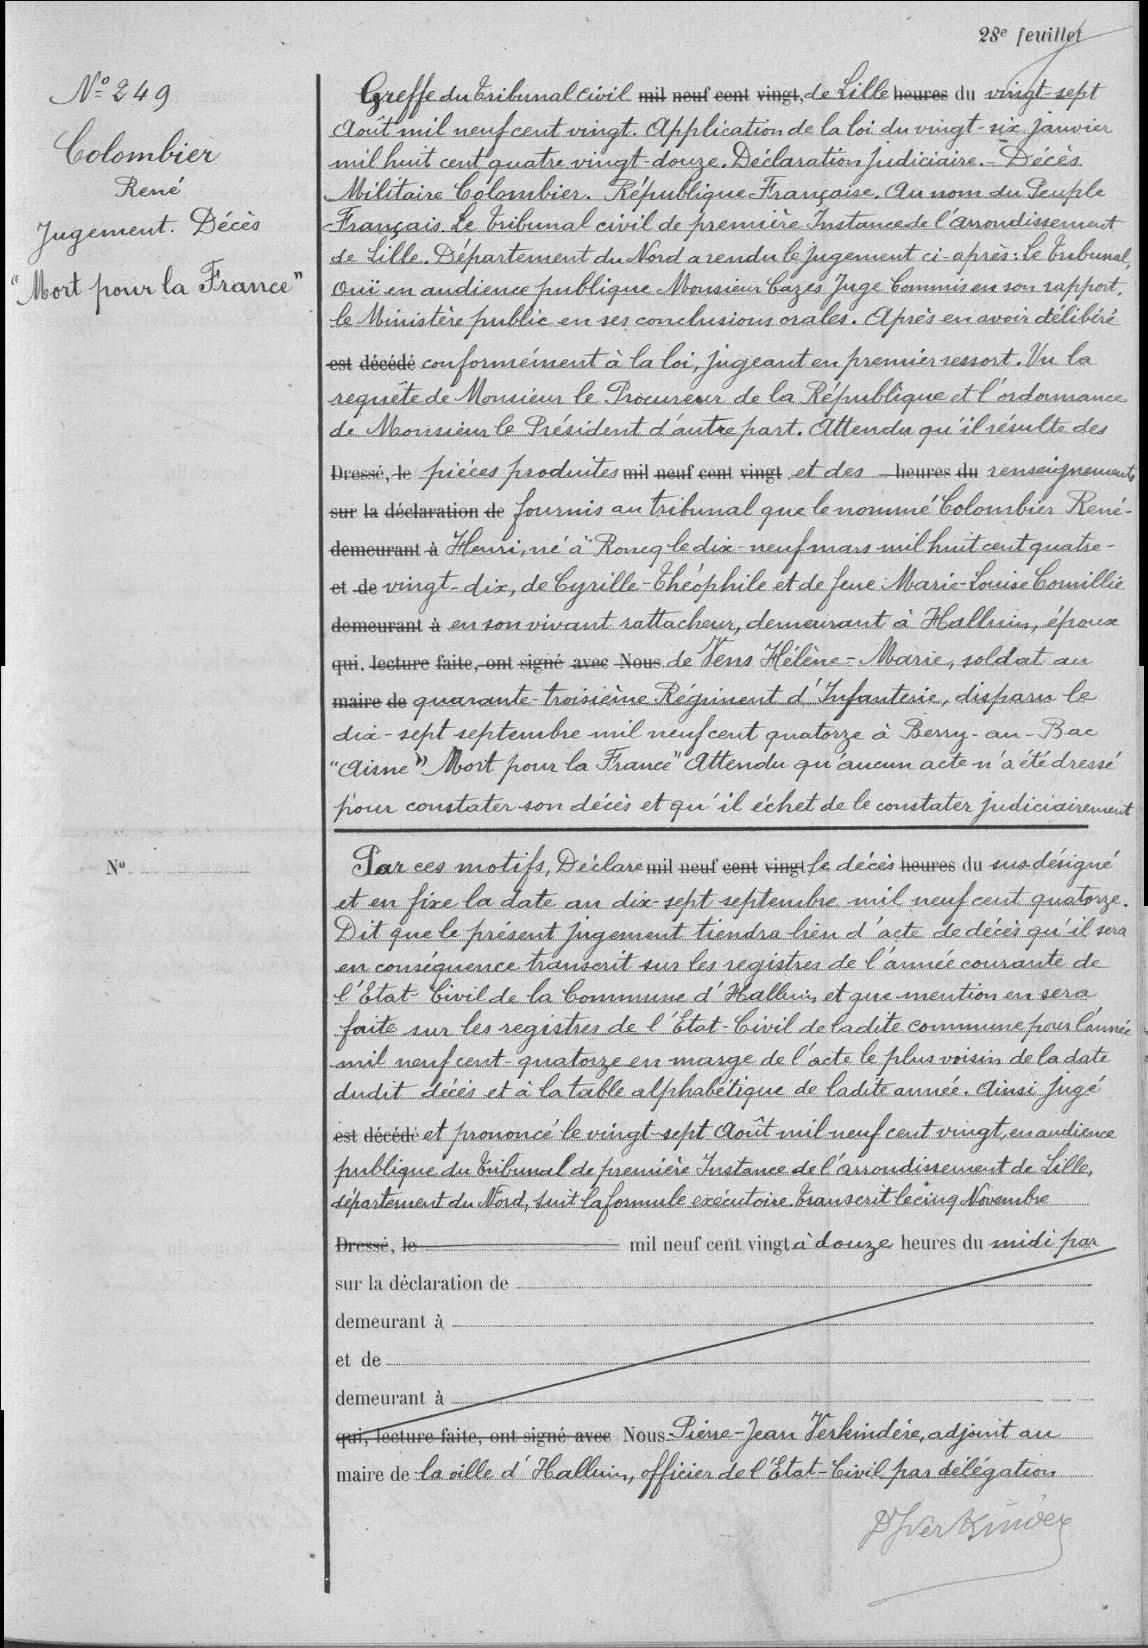 28e feuillet
No 249
Colombier
René
Jugement. Décès
"Mort pour la France"
Greffe du Tribunal Civil mil neuf cent vingt, de Lille heures du vingt-sept
Août mil neuf cent vingt. Application de la loi du vingt-six janvier
mil huit cent quatre vingt-douze. Déclaration judiciaire. - Décès
Militaire Colombier. République-Française. Au nom du Peuple
Français. Le Tribunal civil de première Instance de l'arrondissement
de Lille. Département du Nord a rendu le jugement ci-après: Le Tribunal,
Ouï en audience publique Monsieur Cazes Juge Commis en son rapport,
le Ministère public en ses conclusions orales. Après en avoir délibéré
est décédé conformément à la loi, jugeant en premier ressort. Vu la
requête de Monsieur le Procureur de la République et l'ordonnance
de Monsieur le Président d'autre part. Attendu qu'il résulte des
Dressé, le pièces produites mil neuf cent vingt et des heures du renseignements
sur la déclaration de fournis au tribunal que le nommé Colombier René-
demeurant à Henri, né à Roncq le dix-neuf mars mil huit cent quatre-
et de vingt-dix, de Cyrille-Théophile et de feue Marie-Louise Comillie
demeurant à en son vivant rattacheur, demeurant à Halluin, époux
qui, lecture faite, ont signé avec Nous de Vens Hélène-Marie, soldat au
maire de quarante-troisième Régiment d'Infanterie, disparu le
dix-sept septembre mil neuf cent quatorze à Berry-au-Bac
"Aisne" Mort pour la France" Attendu qu'aucun acte n'a été dressé
pour constater son décès et qu'il échet de le constater judiciairement
No
Par ces motifs, Déclare mil neuf cent vingt le décès heures du sus-désigné
et en fixe la date au dix-sept septembre mil neuf cent quatorze.
Dit que le présent jugement tiendra lieu d'acte de décès qu'il sera
en conséquence transcrit sur les registres de l'année courante de
l'Etat-Civil de la Commune d'Halluin, et que mention en sera
faite sur les registres de l'Etat-Civil de ladite commune pour l'année
mil neuf cent-quatorze en marge de l'acte le plus voisin de la date
dudit décès et à la table alphabétique de ladite année. Ainsi jugé
est décédé et prononcé le vingt-sept Août mil neuf cent vingt, en audience
publique du Tribunal de première Instance de l'arrondissement de Lille,
département du Nord, suit la formule exécutoire. Transcrit le cinq Novembre
Dressé, le mil neuf cent vingt à douze heures du midi par
sur la déclaration de
demeurant à
et de
demeurant à
qui, lecture faite, ont signé avec Nous Pierre-Jean Verkindère, adjoint au
maire de la ville d'Halluin, officier de l'Etat-Civil par délégation
PJVerkinder